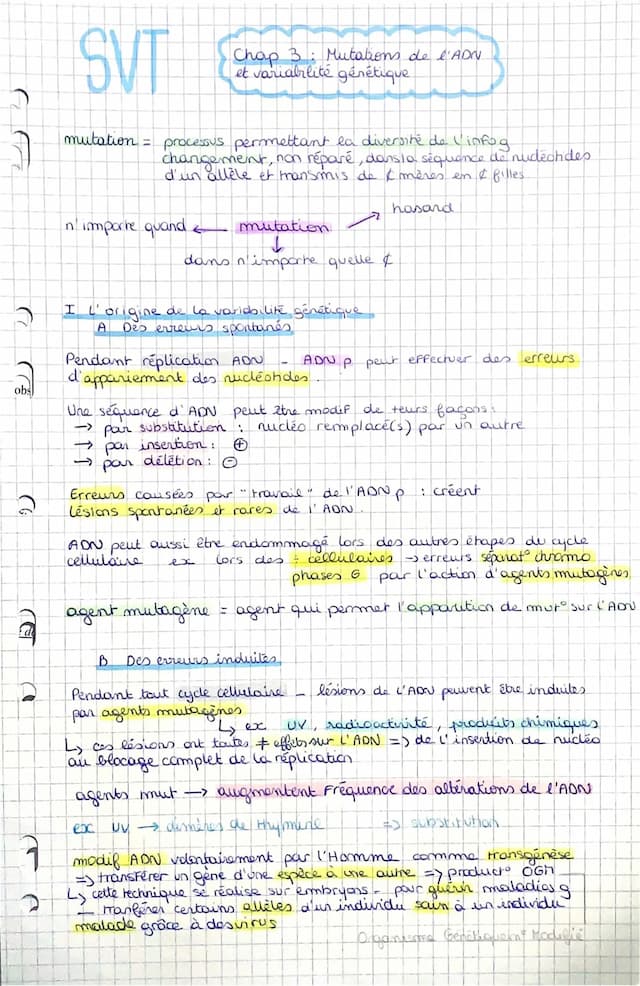 SVT
Chap 3 : Mutations de l'ADN
et variabilité génétique
mutation = processus permettant la diversité de l'info g
changement, non réparé, dans la séquence de nucléotides
d'un allèle et transmis de ¢ mères en ¢ filles
hasard
n'importe quand ← mutation
dans n'importe quelle ¢
I L'origine de la variabilité génétique
A Des erreurs spontanés
Pendant réplication ADN - ADN p peut effectuer des erreurs
d'appariement des nucléotides.
obs
Une séquence d'ADN peut être modif de +eurs façons :
→ par substitution : nucléo remplacé(s) par un autre
→ par insertion : ⊕
→ par délétion : ⊖
Erreurs causées par "travail" de l'ADN p : créent
lésions spontanées et rares de l'ADN.
ADN peut aussi être endommagé lors des autres étapes du cycle
cellulaire ex lors des ÷ cellulaires → erreurs séparat° chromo
phases G par l'action d'agents mutagènes
agent mutagène = agent qui permet l'apparition de mut° sur l'ADN
B Des erreurs induites
Pendant tout cycle cellulaire - lésions de l'ADN peuvent être induites
par agents mutagènes
↳ ex UV, radioactivité, produits chimiques
↳ ces lésions ont toutes ≠ effets sur l'ADN => de l'insertion de nucléo
au blocage complet de la réplication
agents mut → augmentent fréquence des altérations de l'ADN
ex UV → dimères de thymine => substitution
modif ADN volontairement par l'Homme comme transgénèse
=> transférer un gène d'une espèce à une autre => product° OGM
↳ cette technique se réalise sur embryons - pour guérir maladies g
- transférer certains allèles d'un individu sain à un individu
malade grâce à des virus
Organisme Génétiquem° Modifié